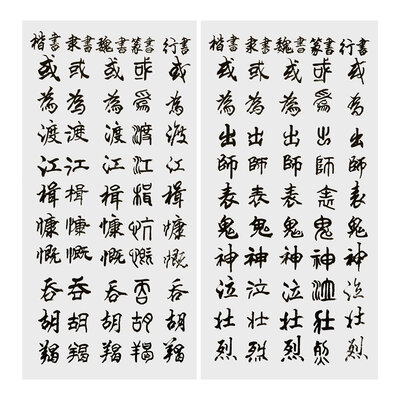 楷書或為渡江楫慷慨吞胡羯
隸書或為渡江楫慷慨吞胡羯
魏書或為渡江楫慷慨吞胡羯
篆書或為渡江楫慷慨吞胡羯
行書或為渡江楫慷慨吞胡羯
楷書或為出師表鬼神泣壯烈
隸書或為出師表鬼神泣壯烈
魏書或為出師表鬼神泣壯烈
篆書或為出師表鬼神泣壯烈
行書或為出師表鬼神泣壯烈